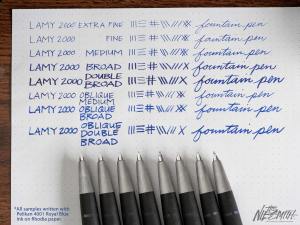 LAMY 2000 EXTRA FINE fountain pen
LAMY 2000 FINE fountain pen
LAMY 2000 MEDIUM fountain pen
LAMY 2000 BROAD fountain pen
LAMY 2000 DOUBLE BROAD fountain pen
LAMY 2000 OBLIQUE MEDIUM fountain pen
LAMY 2000 OBLIQUE BROAD fountain pen
LAMY 2000 OBLIQUE DOUBLE BROAD fountain pen
*All samples written with
Pelikan 4001 Royal Blue
ink on Rhodia paper.
THE
NIBSMITH